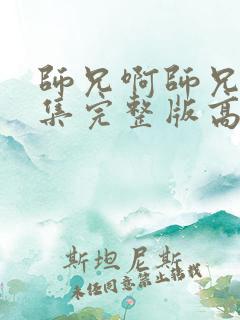 師兄啊師兄
集完整版高
斯坦尼斯
未经同意禁止转载